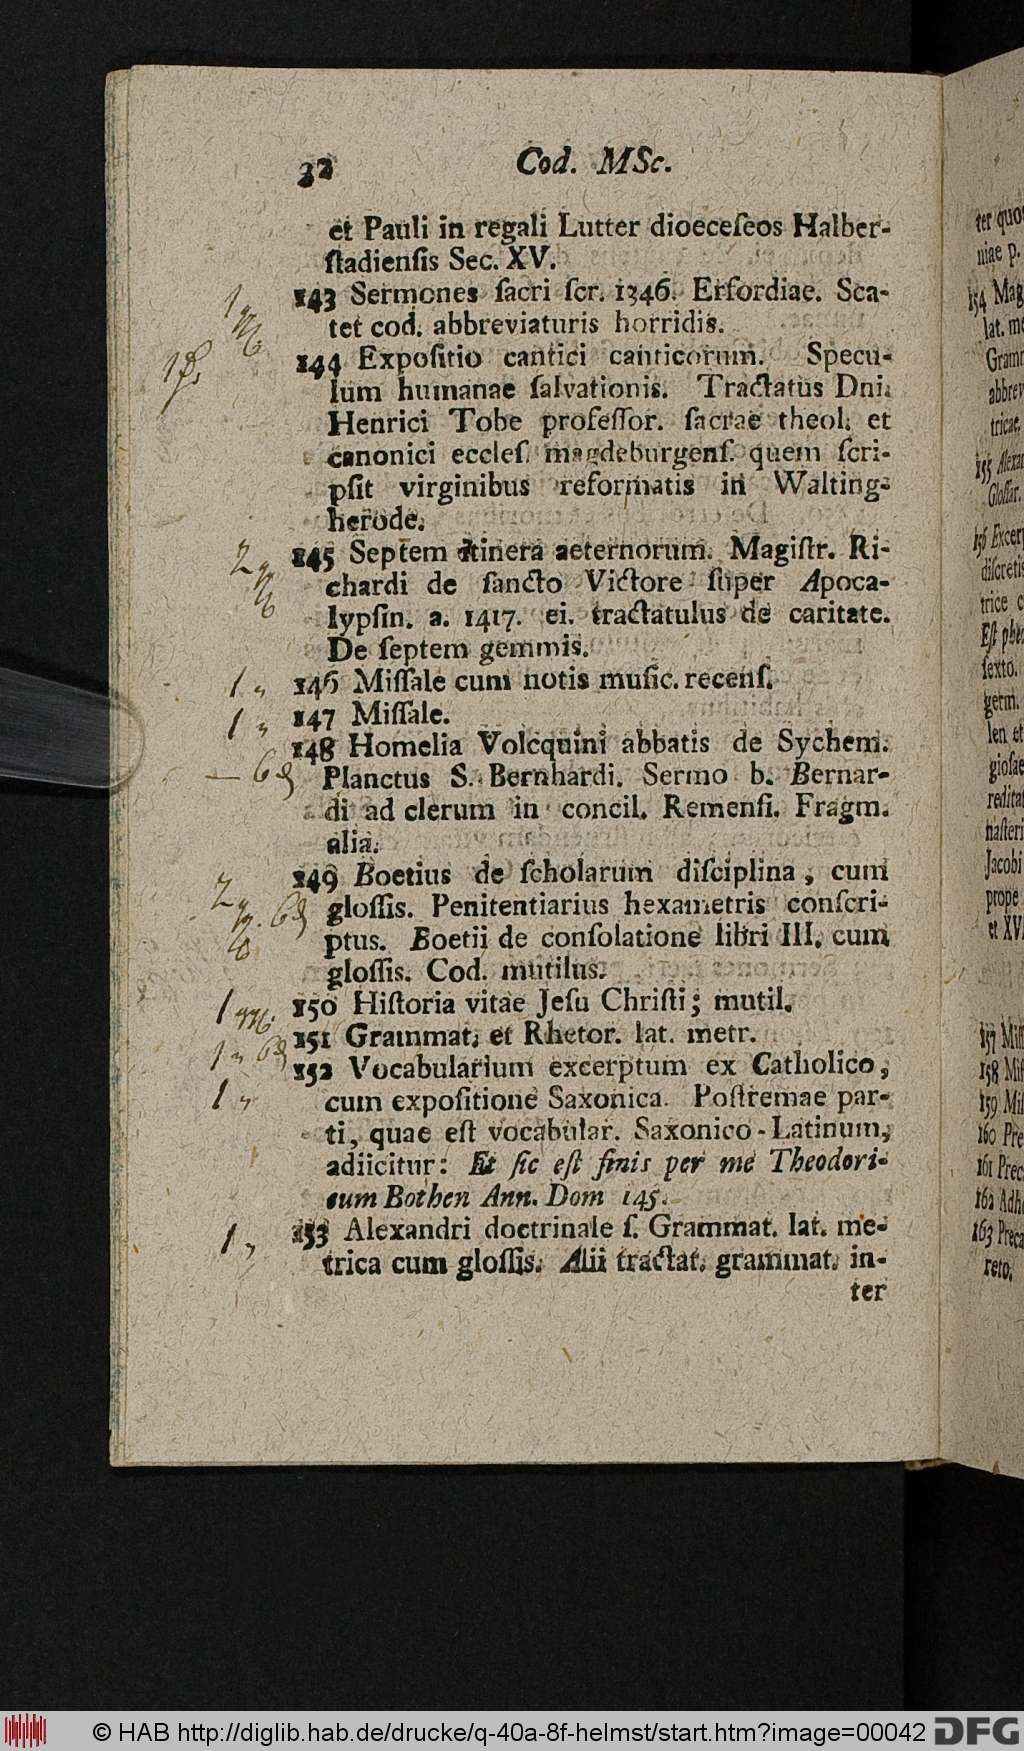 32 Cod. MSc.
et Pauli in regali Lutter dioeceſeos Halber-
ſtadienſis Sec. XV.
143 Sermones ſacri ſcr. 1346. Erfordiae. Sca-
tet cod. abbreviaturis horridis.
144 Expoſitio cantici canticorum. Specu-
lum humanae ſalvationis. Tractatus Dni.
Henrici Tobe profeſſor. ſacrae theol. et
canonici eccleſ. magdeburgenſ. quem ſcri-
pſit virginibus reformatis in Walting-
herode.
145 Septem itinera aeternorum. Magiſtr. Ri-
chardi de ſancto Victore ſuper Apoca-
lypſin. a. 1417. ei. tractatulus de caritate.
De ſeptem gemmis.
1 146 Miſſale cum notis muſic. recenſ.
1 147 Miſſale.
148 Homelia Volcquini abbatis de Sychem.
Planctus S. Bernhardi. Sermo b. Bernar-
di ad clerum in concil. Remenſi. Fragm.
alia.
149 Boetius de ſcholarum diſciplina, cum
gloſſis. Penitentiarius hexametris conſcri-
ptus. Boetii de conſolatione libri III. cum
gloſſis. Cod. mutilus.
150 Hiſtoria vitae Jeſu Chriſti; mutil.
151 Grammat. et Rhetor. lat. metr.
152 Vocabularium excerptum ex Catholico,
cum expoſitione Saxonica. Poſtremae par-
ti, quae eſt vocabular. Saxonico-Latinum,
adiicitur: Et ſic eſt finis per me Theodori-
cum Bothen Ann. Dom 145.
153 Alexandri doctrinale ſ. Grammat. lat. me-
trica cum gloſſis. Alii tractat. grammat. in-
ter
ter quo
niae p.
154 Mag
lat. me
Gramm
abbrev
tricae.
155 Alexan
Gloſſar.
156 Excerp
diſcretis
trice c
ſexto.
germ.
len et
gioſae
reditat
naſteri
Jacobi
prope
et XV.
157 Miſſ
158 Miſ
159 Miſ
160 Pre
161 Prec
162 Adh
163 Preca
reto.
© HAB http://diglib.hab.de/drucke/q-40a-8f-helmst/start.htm?image=00042 DFG